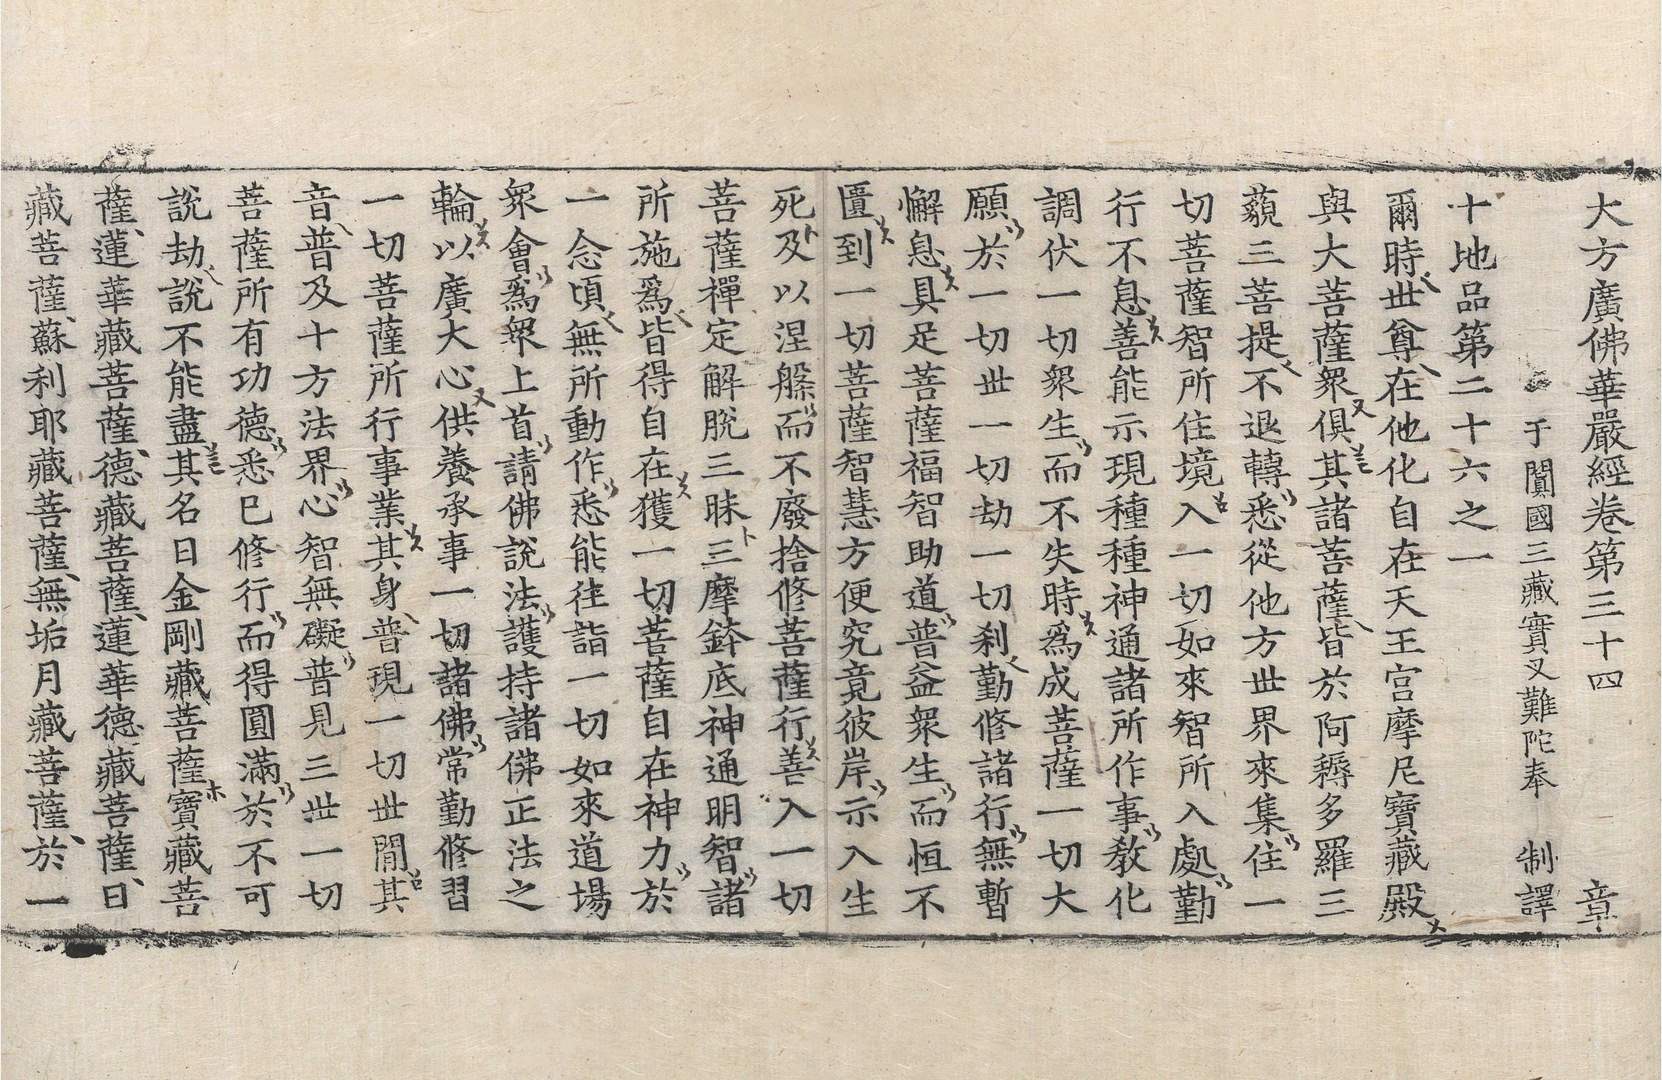 大方廣佛華嚴經卷第三十四 章
于闐國三藏實叉難陀奉 制譯
十地品第二十六之一
爾時世尊在他化自在天王宮摩尼寶藏殿
與大菩薩衆俱其諸菩薩皆於阿耨多羅三
藐三菩提不退轉悉從他方世界來集住一
切菩薩智所住境入一切如來智所入處勤
行不息善能示現種種神通諸所作事教化
調伏一切衆生而不失時爲成菩薩一切大
願於一切世一切劫一切刹勤修諸行無暫
懈息具足菩薩福智助道普益衆生而恒不
匱到一切菩薩智慧方便究竟彼岸示入生
死及以涅槃而不廢捨修菩薩行善入一切
菩薩禪定解脫三昧三摩鉢底神通明智諸
所施爲皆得自在獲一切菩薩自在神力於
一念頃無所動作悉能往詣一切如來道場
衆會爲衆上首請佛說法護持諸佛正法之
輪以廣大心供養承事一切諸佛常勤修習
一切菩薩所行事業其身普現一切世間其
音普及十方法界心智無礙普見三世一切
菩薩所有功德悉已修行而得圓滿於不可
說劫說不能盡其名曰金剛藏菩薩寶藏菩
薩蓮華藏菩薩德藏菩薩蓮華德藏菩薩日
藏菩薩蘇利耶藏菩薩無垢月藏菩薩於一